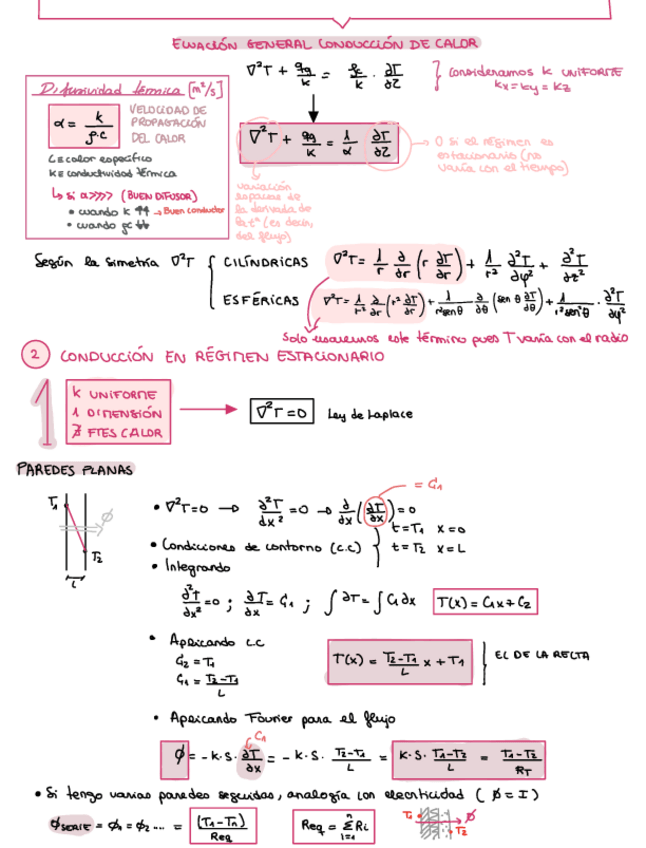 ECUACIÓN GENERAL CONDUCCIÓN DE CALOR
∇²T + qg/k = ρc/k · ∂T/∂Z } Consideramos k UNIFORME
kx=ky=kz
Difusividad térmica [m²/s]
α = k/ρ·c
VELOCIDAD DE PROPAGACIÓN DEL CALOR
C≡calor específico
K≡conductividad térmica
↳ si α>>>> (BUEN DIFUSOR)
• cuando k ↑↑ → Buen conductor
• cuando ρc ↓↓
∇²T + qg/k = 1/α ∂T/∂Z
→ 0 si el régimen es
estacionario (no
varía con el tiempo)
variación
espacial de
la derivada de
la tª (es decir,
del flujo)
Según la simetría ∇²T { CILÍNDRICAS ∇²T = 1/r ∂/∂r (r ∂T/∂r) + 1/r² ∂²T/∂φ² + ∂²T/∂z²
ESFÉRICAS ∇²T = 1/r² ∂/∂r (r² ∂T/∂r) + 1/r²senθ ∂/∂θ (senθ ∂T/∂θ) + 1/r²sen²θ · ∂²T/∂φ²
Solo usaremos este término pues T varía con el radio
2 CONDUCCIÓN EN RÉGIMEN ESTACIONARIO
1
k UNIFORME
1 DIMENSIÓN
∄ FTES CALOR
→ ∇²T=0 Ley de Laplace
PAREDES PLANAS
T1 ϕ T2 L
= C1
• ∇²T=0 → ∂²T/dx² =0 → ∂/∂x (∂T/∂x) = 0
• Condiciones de contorno (c.c) { t=T1 x=0
t=T2 x=L
• Integrando
∂²t/∂x² =0 ; ∂T/∂x = C1 ; ∫∂T = ∫C1∂x T(x) = C1x + C2
• Aplicando C.C
C2 = T1
C1 = T2-T1/L
T(x) = T2-T1/L x + T1 ] EC DE LA RECTA
• Aplicando Fourier para el flujo
C1
ϕ = -k·S·∂T/∂x = -k·S· T2-T1/L = K·S· T1-T2/L = T1-T2/RT
• Si tengo varias paredes seguidas, analogía con electricidad (ϕ=I)
ϕSERIE = ϕ1 = ϕ2 .... = (T1-Tn)/Req
Req = Σ Ri
n
i=1
T1 ϕ
T2